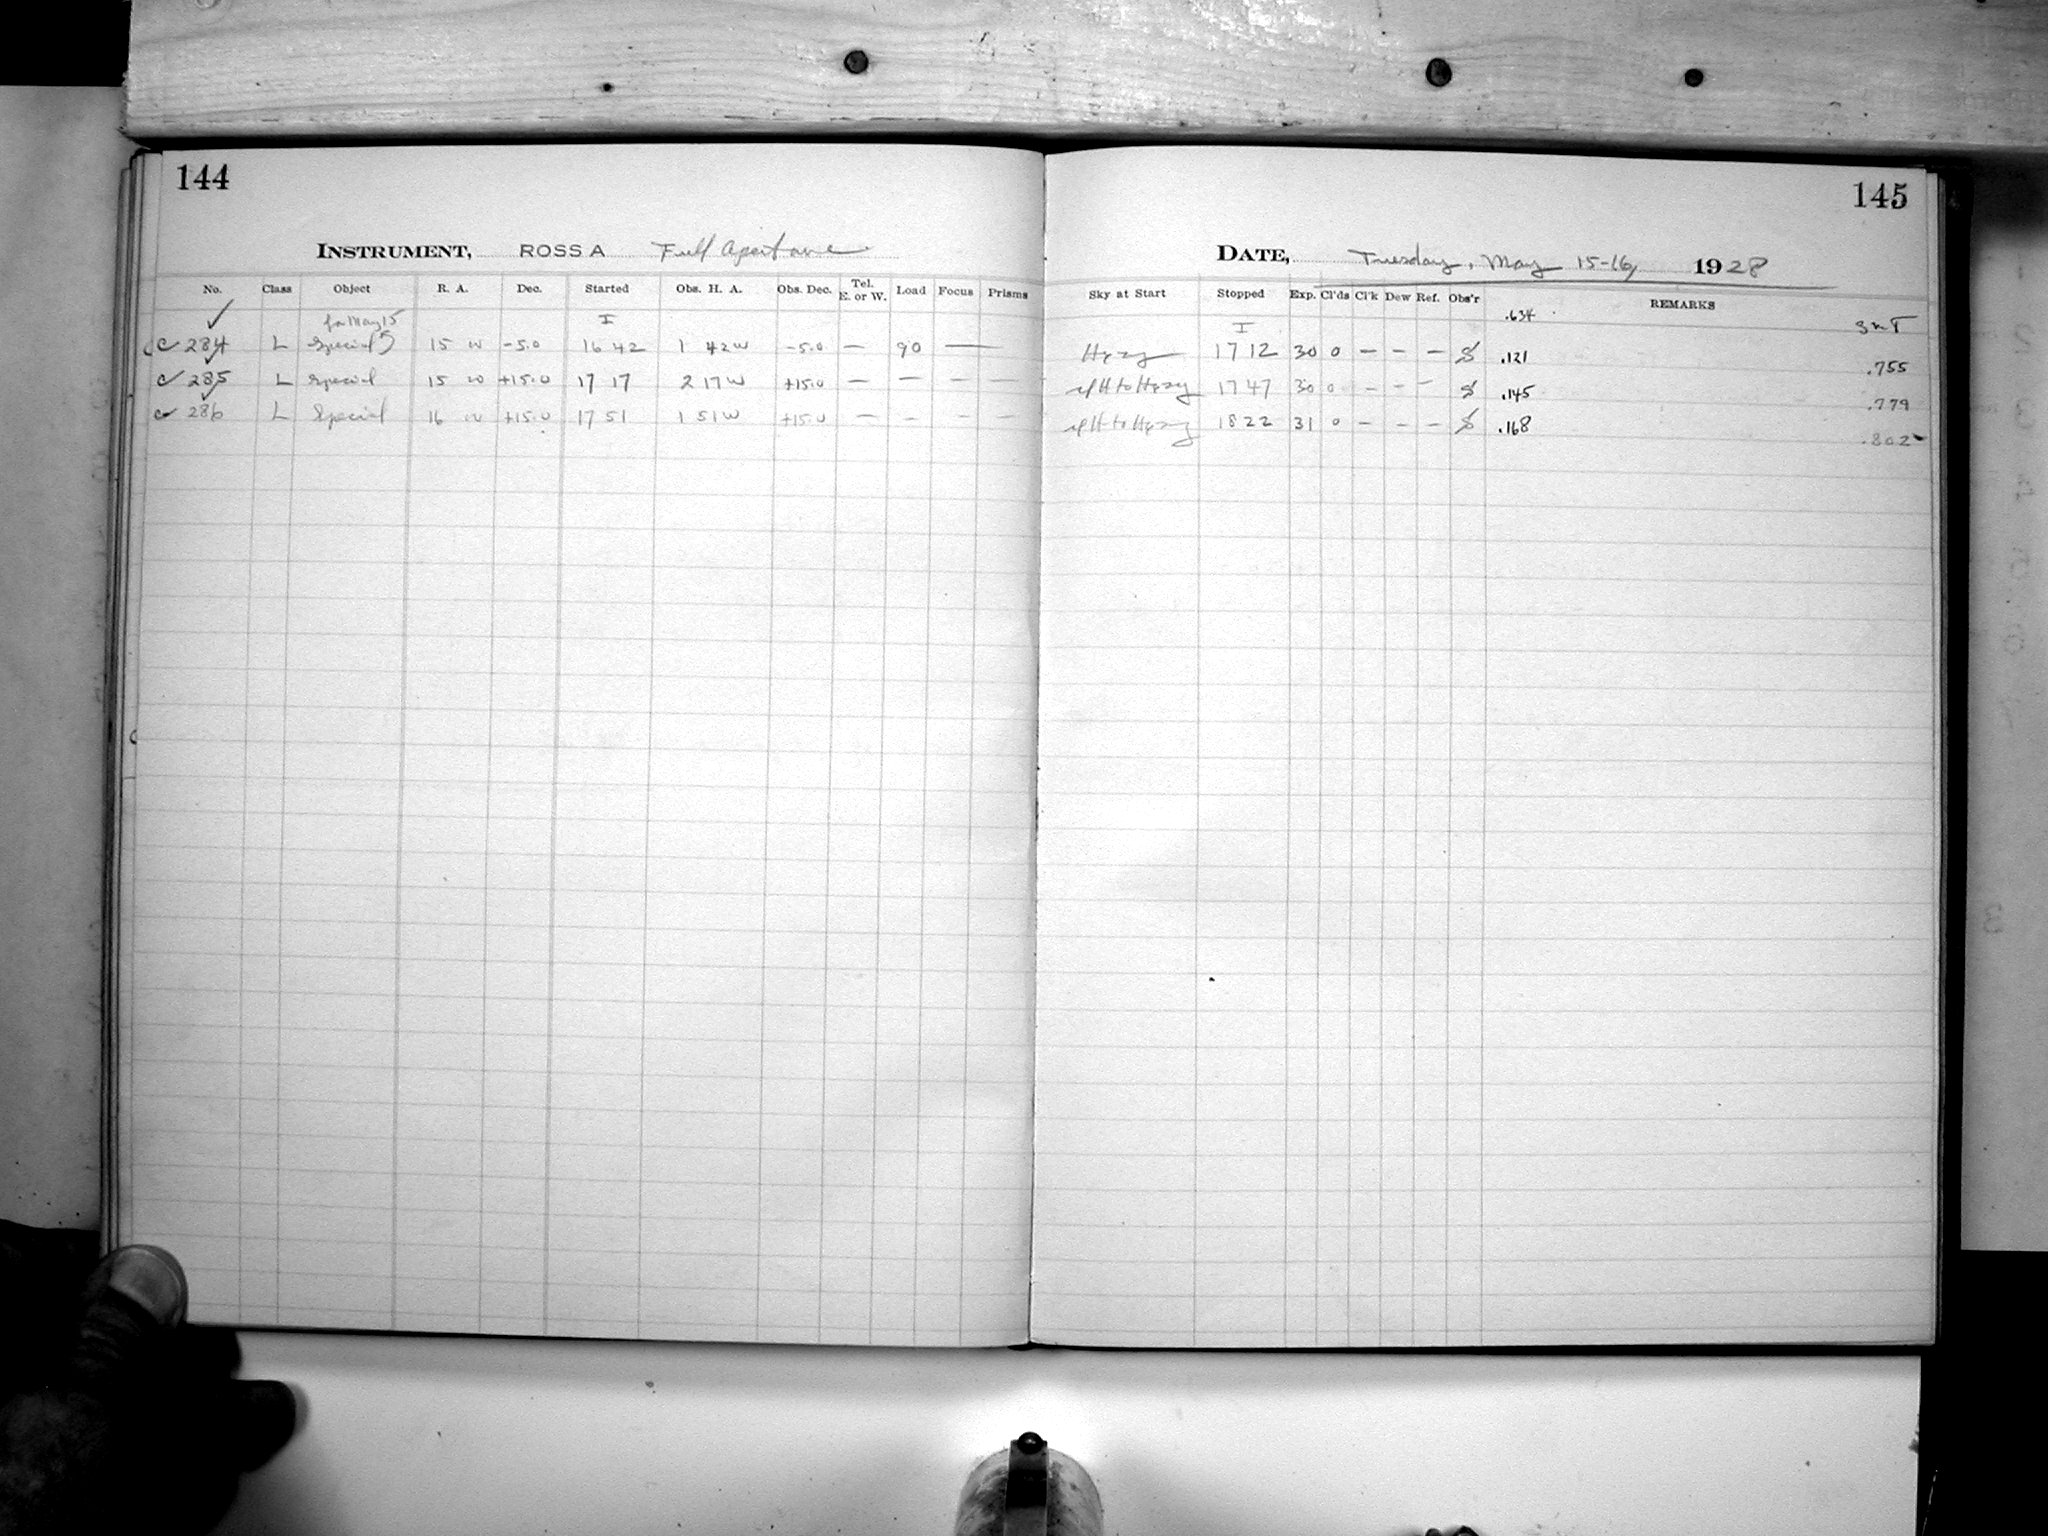 144
INSTRUMENT, ROSS A Full Aperture
No. Class Object R. A. Dec. Started Obs. H. A. Obs. Dec. Tel. E. or W. Load Focus Prisms
for May 15 I
284 L Special 15 w -5.0 16 42 1 42 w -5.0 — 90 —
285 L Special 15 w +15.0 17 17 2 17 w +15.0 — — — —
286 L Special 16 w +15.0 17 51 1 51 w +15.0 — — — —
145
DATE, Tuesday, May 15-16, 1928
Sky at Start Stopped Exp. Cl'ds Cl'k Dew Ref. Obs'r REMARKS
I .634
Hazy 17 12 30 0 — — — .121 .755
to Hazy 17 47 30 0 — — — .145 .779
to Hazy 18 22 31 0 — — — .168 .802